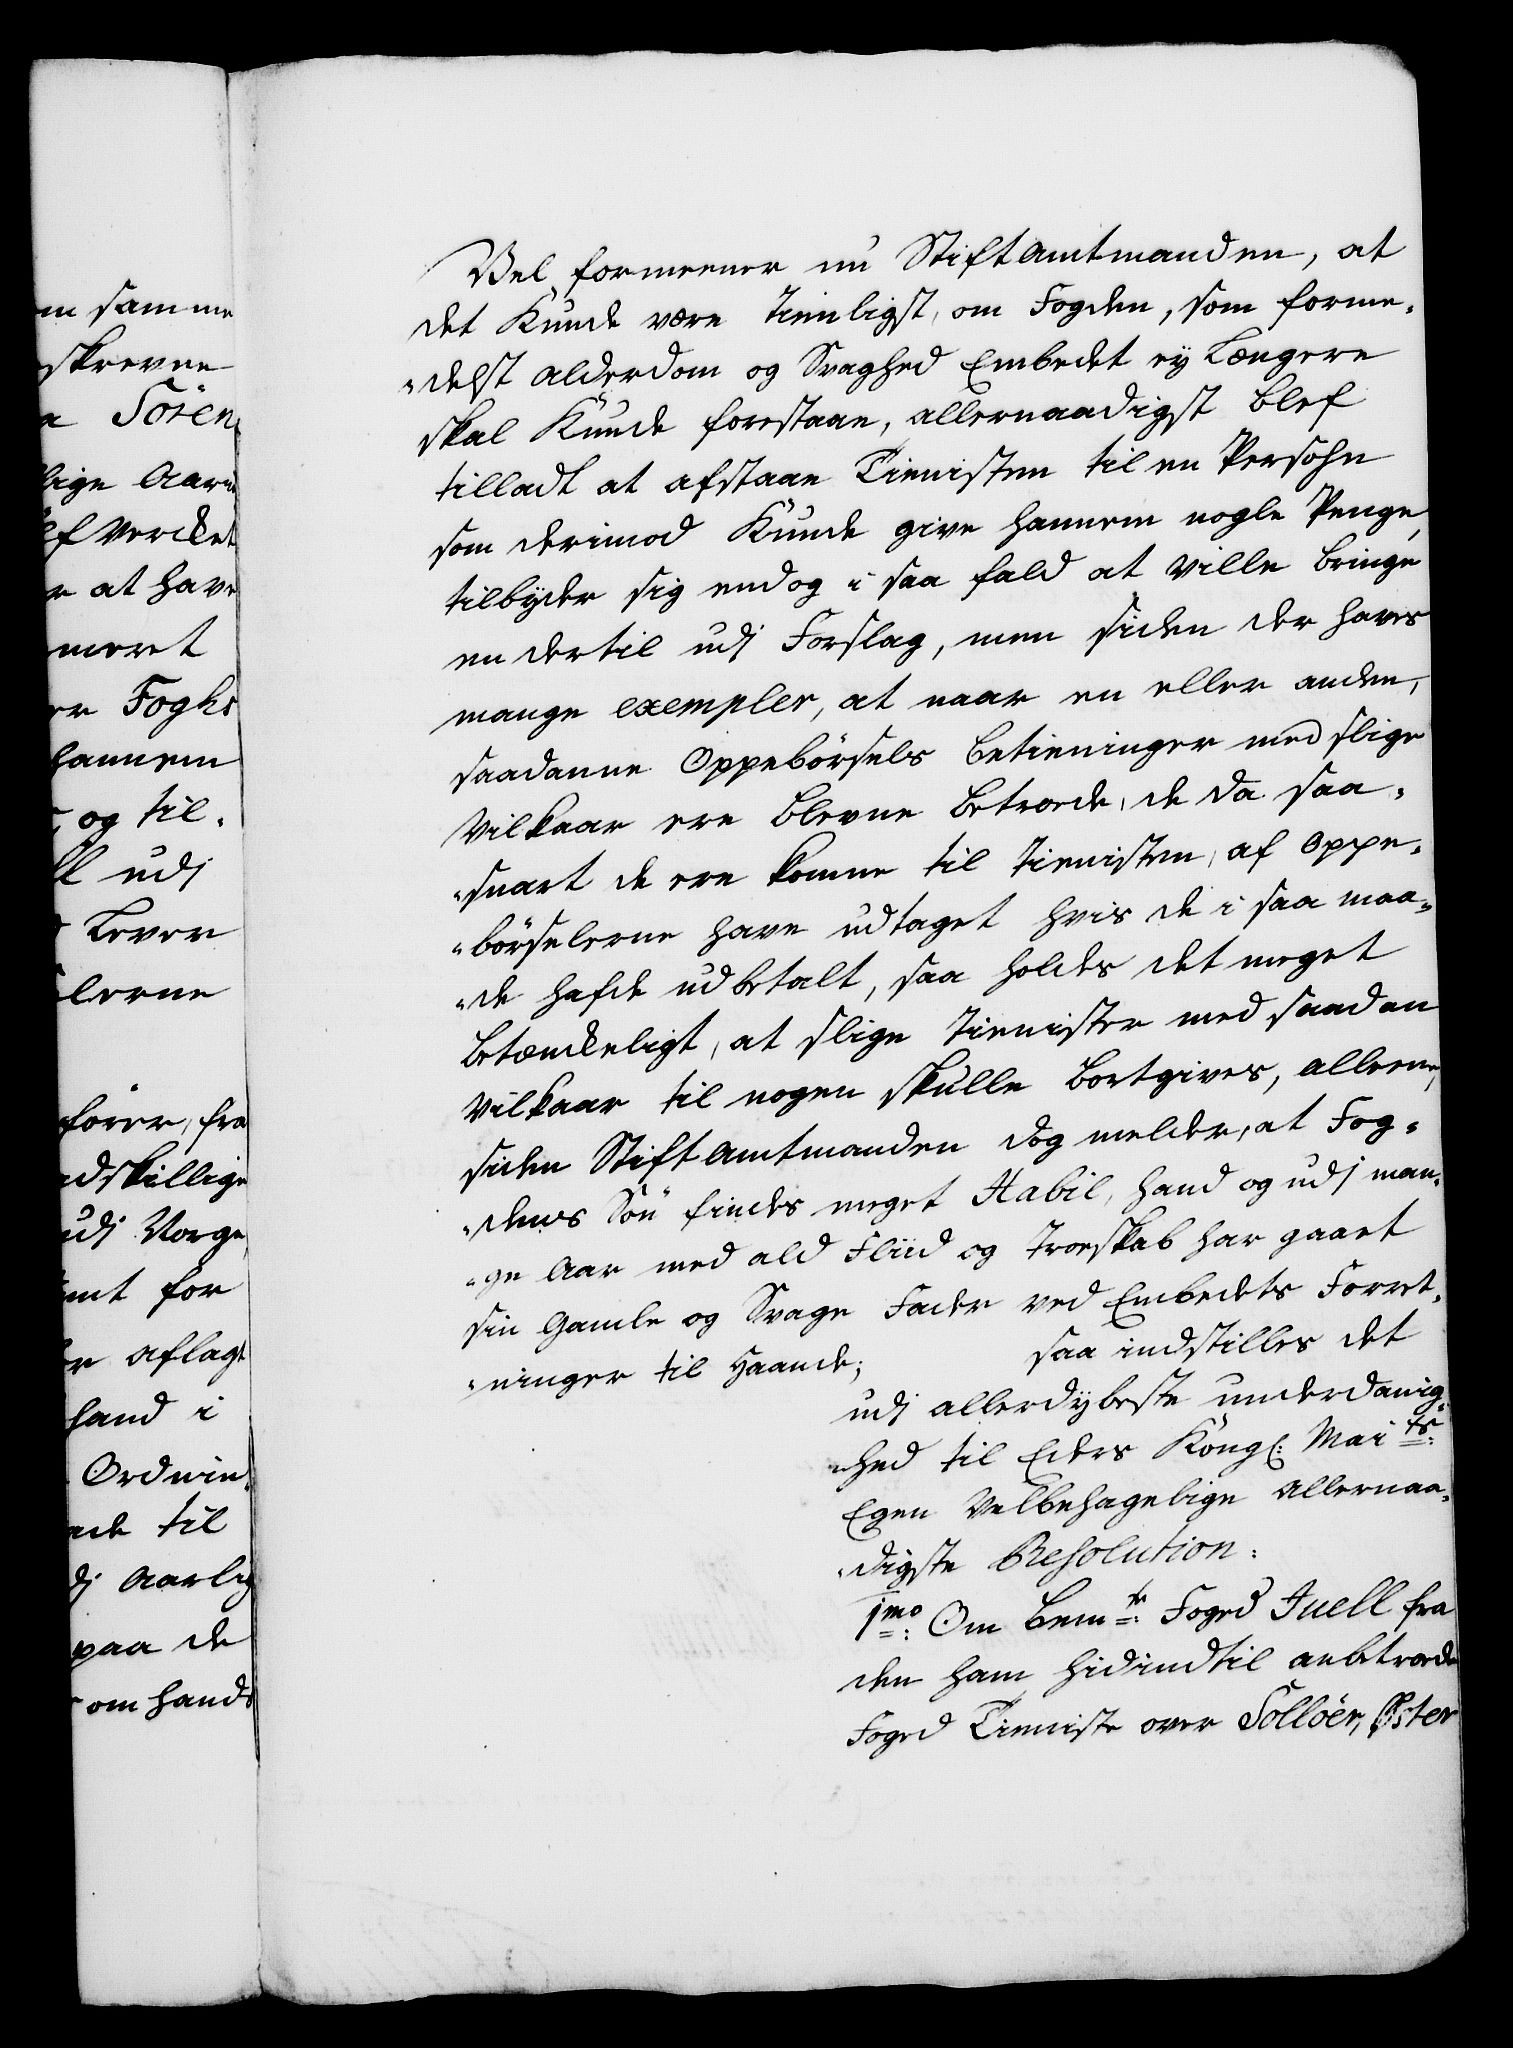 m samme
skrevne
Sören
lige Aar
f Verket
r at have
meret
er Foghs
hannem
og til„
ll udj
Lever
lerne
förer, fra
dskillige
udj Norge
mt for
er aflagt
hand i
Ordnin„
nde til
dj Aarlig
paa de
om hands
Vel formeener nu Stiftamtmanden, at
det Kunde være tienligst, om Fogden, som forme„
„delst Alderdom og Svaghed Embedet ey Længere
skal Kunde forestaae, allernaadigst blef
tilladt at afstaae Tienisten til en Persohn
som derimod Kunde give hannem nogle Penge,
tilbyder sig endog i saa fald at ville bringe
en dertil udj Forslag, men siden der haves
mange exempler, at naar en eller anden,
saadanne Oppebörsels betieninger med slige
Vilkaar ere blevne betroede, de da saa„
„snart de ere komne til Tienisten, af Oppe„
„börselerne have udtaget hvis de i saa maa„
„de hafde udbetalt, saa holdes det meget
betænkeligt, at slige Tienister med saadan
Vilkaar til nogen skulle bortgives, alleene,
siden Stiftamtmanden dog melder, at Fog„
„dens Sön findes meget Habil, hand og udj man„
„ge Aar med ald Fliid og Troeskab har gaaet
sin Gamle og Svage Fader ved Embedets Forret„
„ninger til Haande;
saa indstilles det
udj allerdybeste underdanig„
„hed til Eders Kongl: Maits:
Egen Velbehagelige Allernaa„
„digste Resolution:
1mo: Om bemte: Foged Juell fra
den ham hidindtil anbetroede
Foged Tieniste over Solloër, Øster